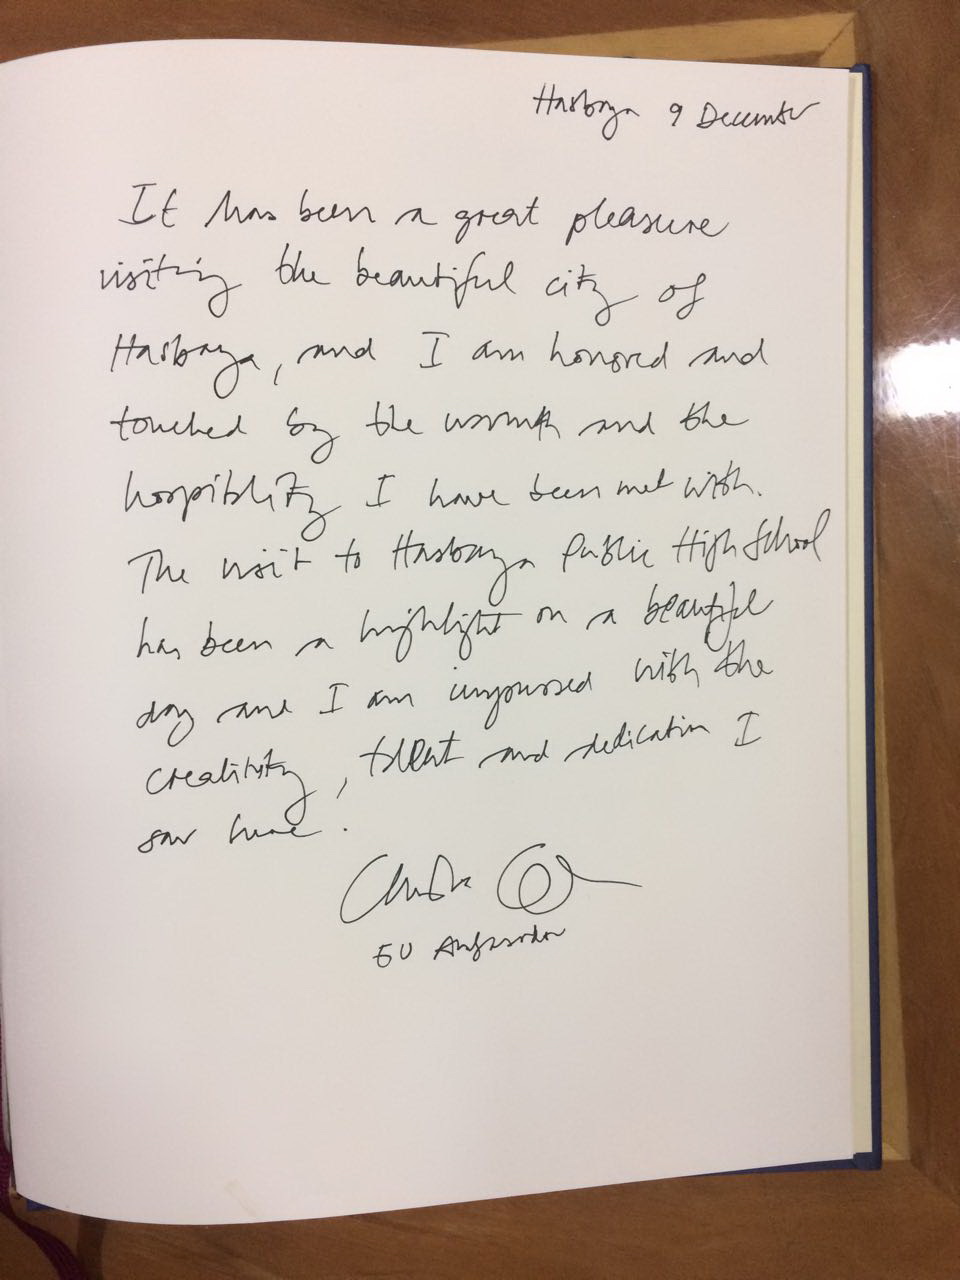 Hasbaya 9 December
It has been a great pleasure
visiting the beautiful city of
Hasbaya, and I am honored and
touched by the warmth and the
hospitality I have been met with.
The visit to Hasbaya Public High School
has been a highlight on a beautiful
day and I am impressed with the
creativity, talent and dedication I
saw here.
EU Ambassador